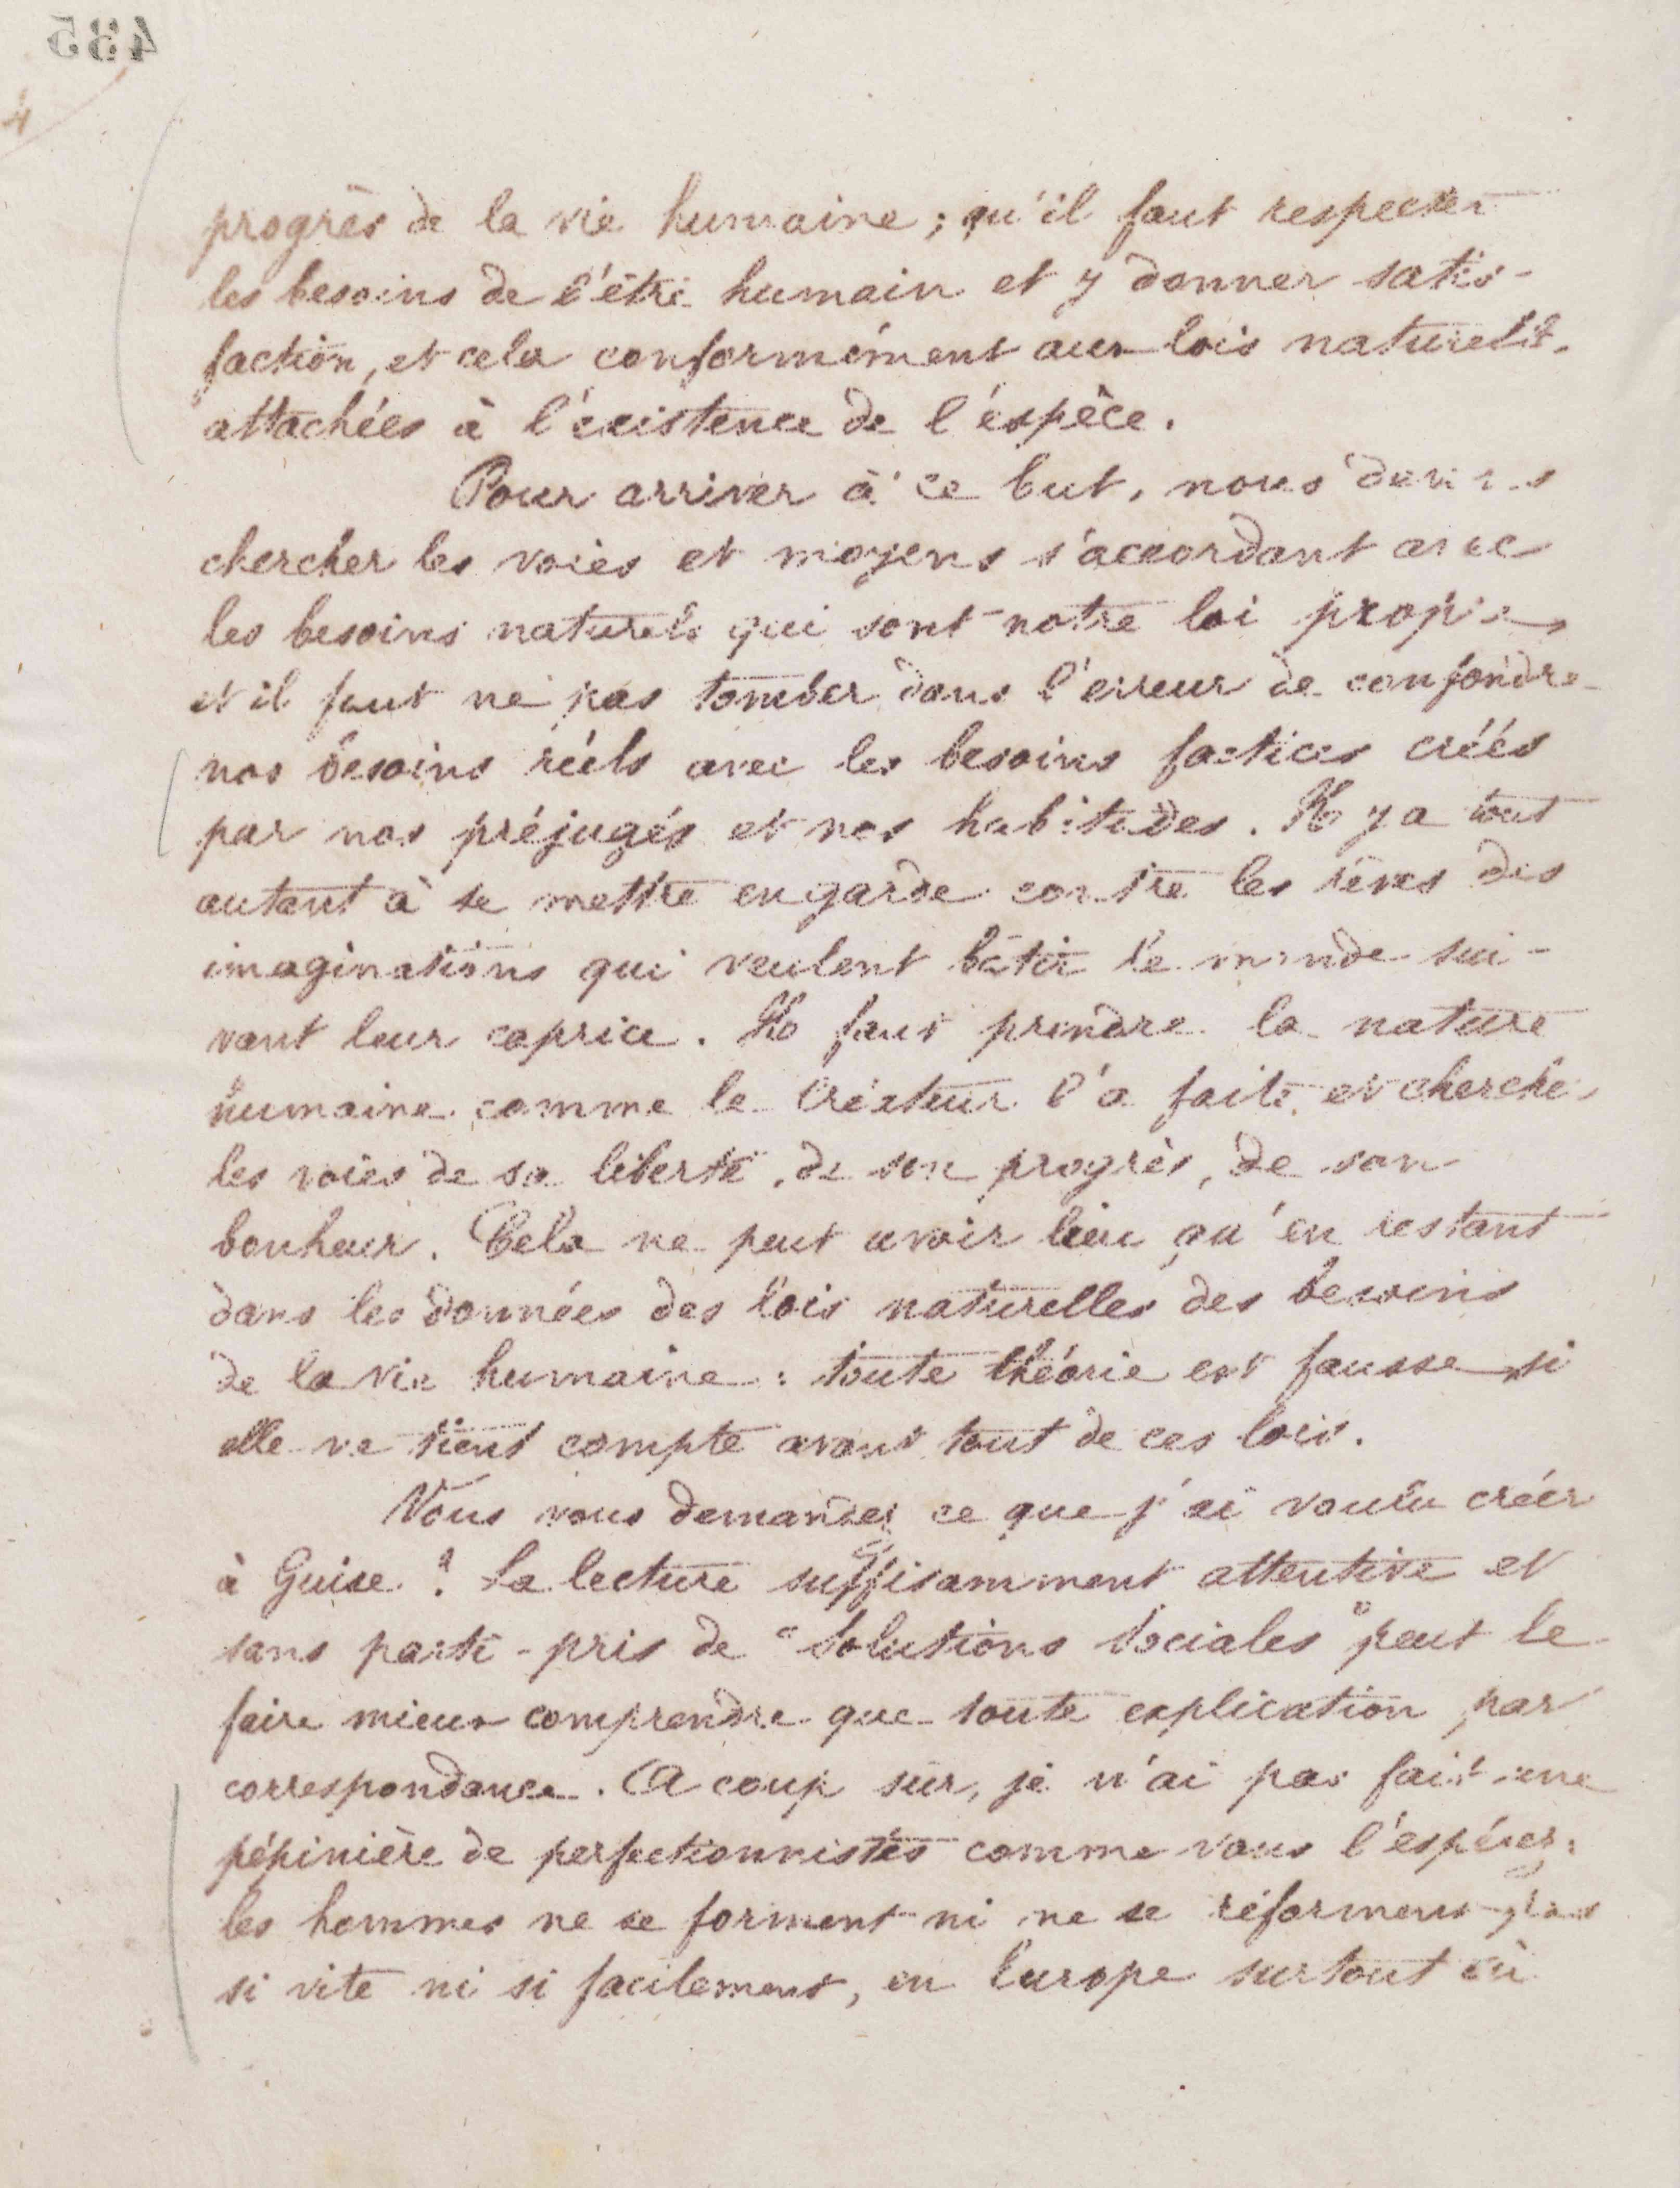 435
4
progrès de la vie humaine ; qu'il faut respecter
les besoins de l'être humain et y donner satis-
faction, et cela conformément aux lois naturelles
attachées à l'existence de l'espèce.
Pour arriver à ce but, nous devons
chercher les voies et moyens s'accordant avec
les besoins naturels qui sont notre loi propre,
et il faut ne pas tomber dans l'erreur de confondre
nos besoins réels avec les besoins factices créés
par nos préjugés et nos habitudes. Il y a tout
autant à se mettre en garde contre les rêves des
imaginations qui veulent bâtir le monde sui-
vant leur caprice. Il faut prendre la nature
humaine comme le Créateur l'a faite, et chercher
les voies de sa liberté, de son progrès, de son
bonheur. Cela ne peut avoir lieu qu'en restant
dans les données des lois naturelles des besoins
de la vie humaine : toute théorie est fausse si
elle ne tient compte avant tout de ces lois.
Vous vous demandez ce que j'ai voulu créer
à Guise ? La lecture suffisamment attentive et
sans parti-pris de "Solutions Sociales" peut le
faire mieux comprendre que toute explication par
correspondance. A coup sûr, je n'ai pas fait une
pépinière de perfectionnistes comme vous l'espérez ;
les hommes ne se forment ni ne se réforment pas
si vite ni si facilement, en Europe surtout où